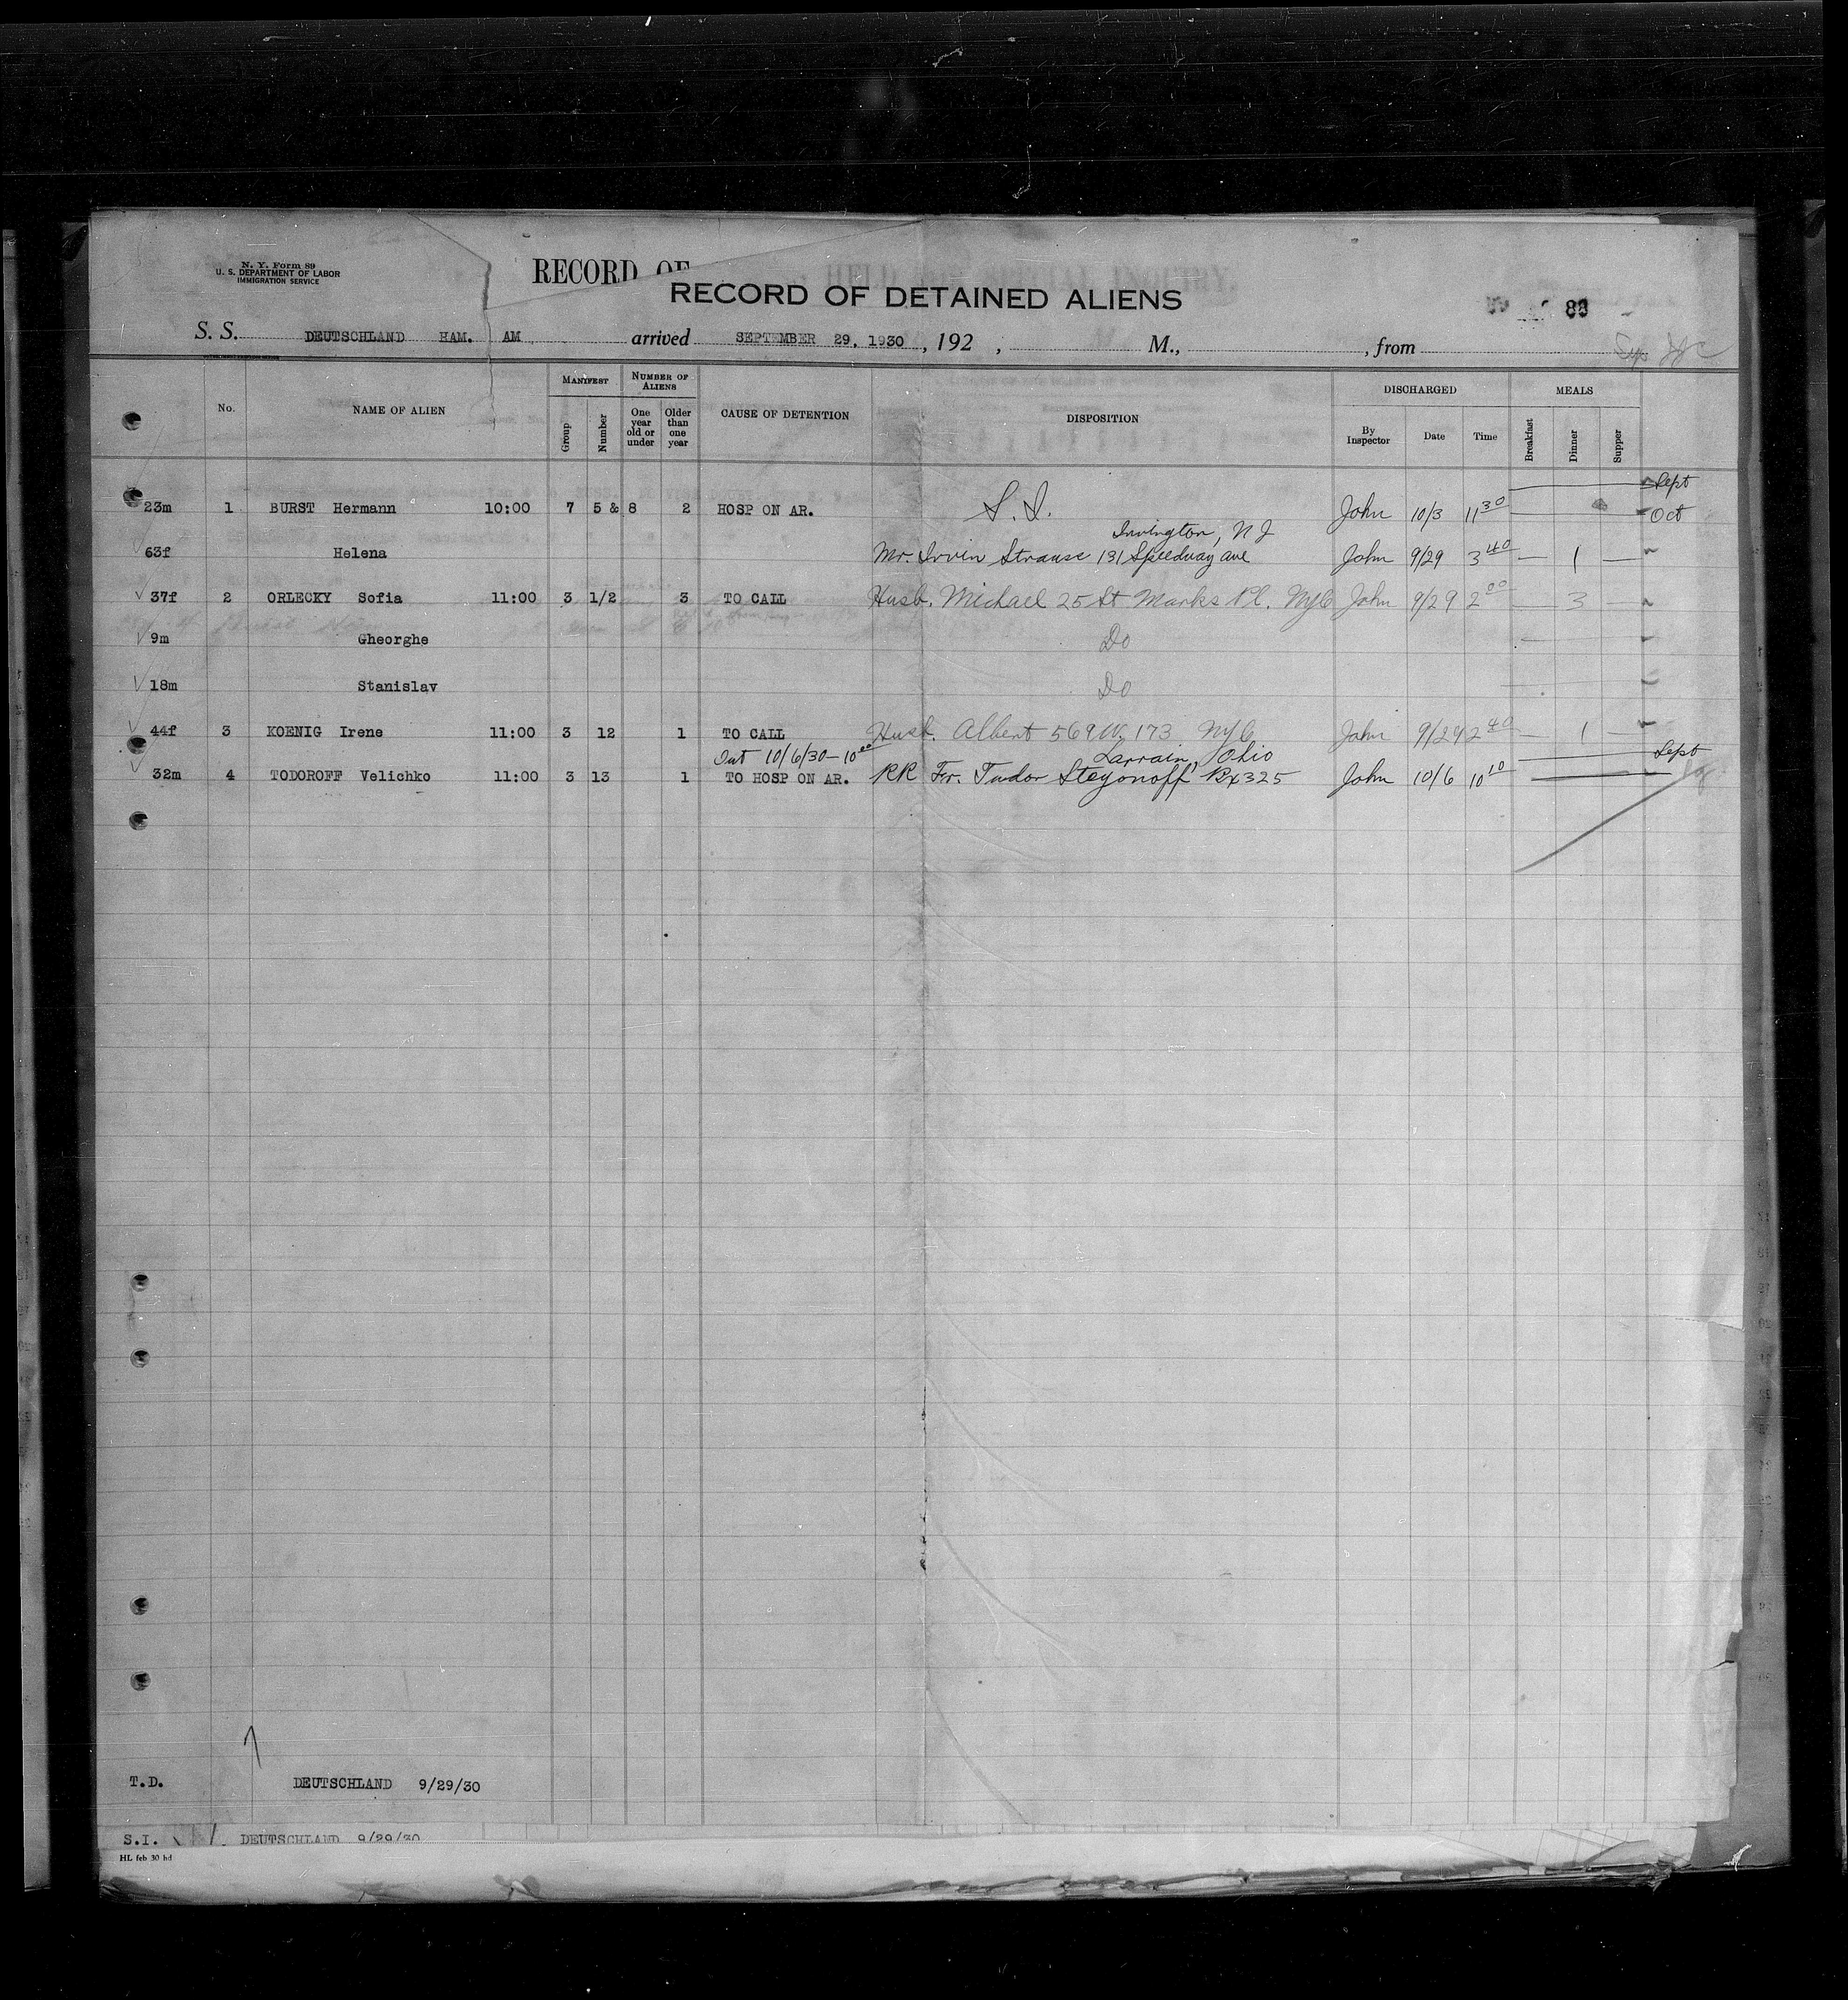 N. Y. Form 89
U. S. DEPARTMENT OF LABOR
IMMIGRATION SERVICE
RECORD OF
RECORD OF DETAINED ALIENS
83
S. S. DEUTSCHLAND HAM. AM arrived SEPTEMBER 29, 1930, 192 , M., , from
No. NAME OF ALIEN MANIFEST Group Number NUMBER OF ALIENS One year old or under Older than one year CAUSE OF DETENTION DISPOSITION DISCHARGED By Inspector Date Time MEALS Breakfast Dinner Supper
Sept
23m 1 BURST Hermann 10:00 7 5 & 8 2 HOSP ON AR. S.I. John 10/3 11 30 Oct
Irvington, N J
63f Helena Mr. Irvin Strause 131 Speedway ave John 9/29 3 40 — 1 —
37f 2 ORLECKY Sofia 11:00 3 1/2 3 TO CALL Husb. Michael 25 St Marks Pl. NYC John 9/29 2 00 — 3 —
9m Gheorghe Do
18m Stanislav Do
44f 3 KOENIG Irene 11:00 3 12 1 TO CALL Husb. Albert 569 W. 173 NYC John 9/29 2 40 — 1 —
10/6/30 - 10 00 Larrain, Ohio Sept
32m 4 TODOROFF Velichko 11:00 3 13 1 TO HOSP ON AR. RR Fr. Tudor Steyonoff Bx 325 John 10/6 10 10
T.D. DEUTSCHLAND 9/29/30
S.I. DEUTSCHLAND 9/29/30
HL feb 30 hd